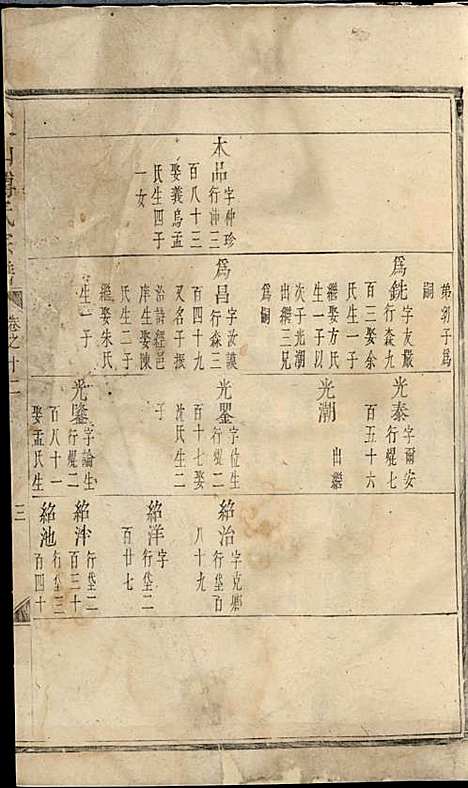 木品
字仲珍
行沖三
百八十三
娶義烏孟
氏生四子
一女
弟郭子爲
嗣
爲銑
字友嚴
行森九
百二娶余
氏生一子
繼娶方氏
生一子以
次子光潮
出繼三兄
爲嗣
爲昌
字汝謨
行森三
百四十九
又名子振
治詩經邑
庠生娶陳
氏生二子
繼娶朱氏
生一子
光泰
字爾安
行焜七
百五十六
光潮
出繼
光墅
字位生
行焜二
百十七娶
沈氏生二
子
光鑒
字諭生
行焜二
百八十一
娶孟氏生
紹治
字克鄉
行垈百
八十九
紹洋
字
行垈二
百廿七
紹泮
行垈二
百三十
紹池
行垈三
百四十
卷之十二
三